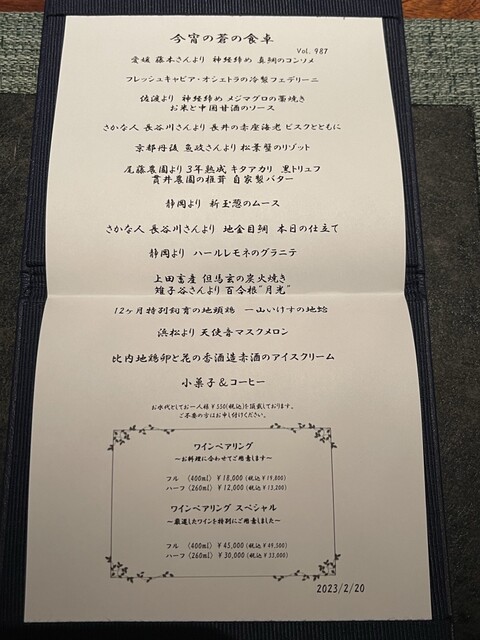 今宵の蒼の食卓
Vol. 987
愛媛 藤本さんより 神経締め 真鯛のコンソメ
フレッシュキャビア・オシェトラの冷製フェデリーニ
佐渡より 神経締め メジマグロの藁焼き
お米と中国甘酒のソース
さかな人 長谷川さんより 長井の赤座海老 ビスクとともに
京都丹後 魚政さんより 松葉蟹のリゾット
尾藤農園より 3年熟成 キタアカリ 黒トリュフ
貫井農園の椎茸 自家製バター
静岡より 新玉葱のムース
さかな人 長谷川さんより 地金目鯛 本日の仕立て
静岡より ハールレモネのグラニテ
上田畜産 但馬玄の炭火焼き
雉子谷さんより 百合根"月光"
12ヶ月特別飼育の地頭鶏 一山いけすの地鯰
浜松より 天使音マスクメロン
比内地鶏卵と花の香酒造赤酒のアイスクリーム
小菓子&コーヒー
お水代としてお一人様¥550(税込)を頂戴しております。
ご不要の方はお申し付けください。
ワインペアリング
～お料理に合わせてご用意します～
フル (400ml) ¥18,000 (税込¥19,800)
ハーフ (260ml) ¥12,000 (税込¥13,200)
ワインペアリング スペシャル
～厳選したワインを特別にご用意しました～
フル (400ml) ¥45,000 (税込¥49,500)
ハーフ (260ml) ¥30,000 (税込¥33,000)
2023/2/20